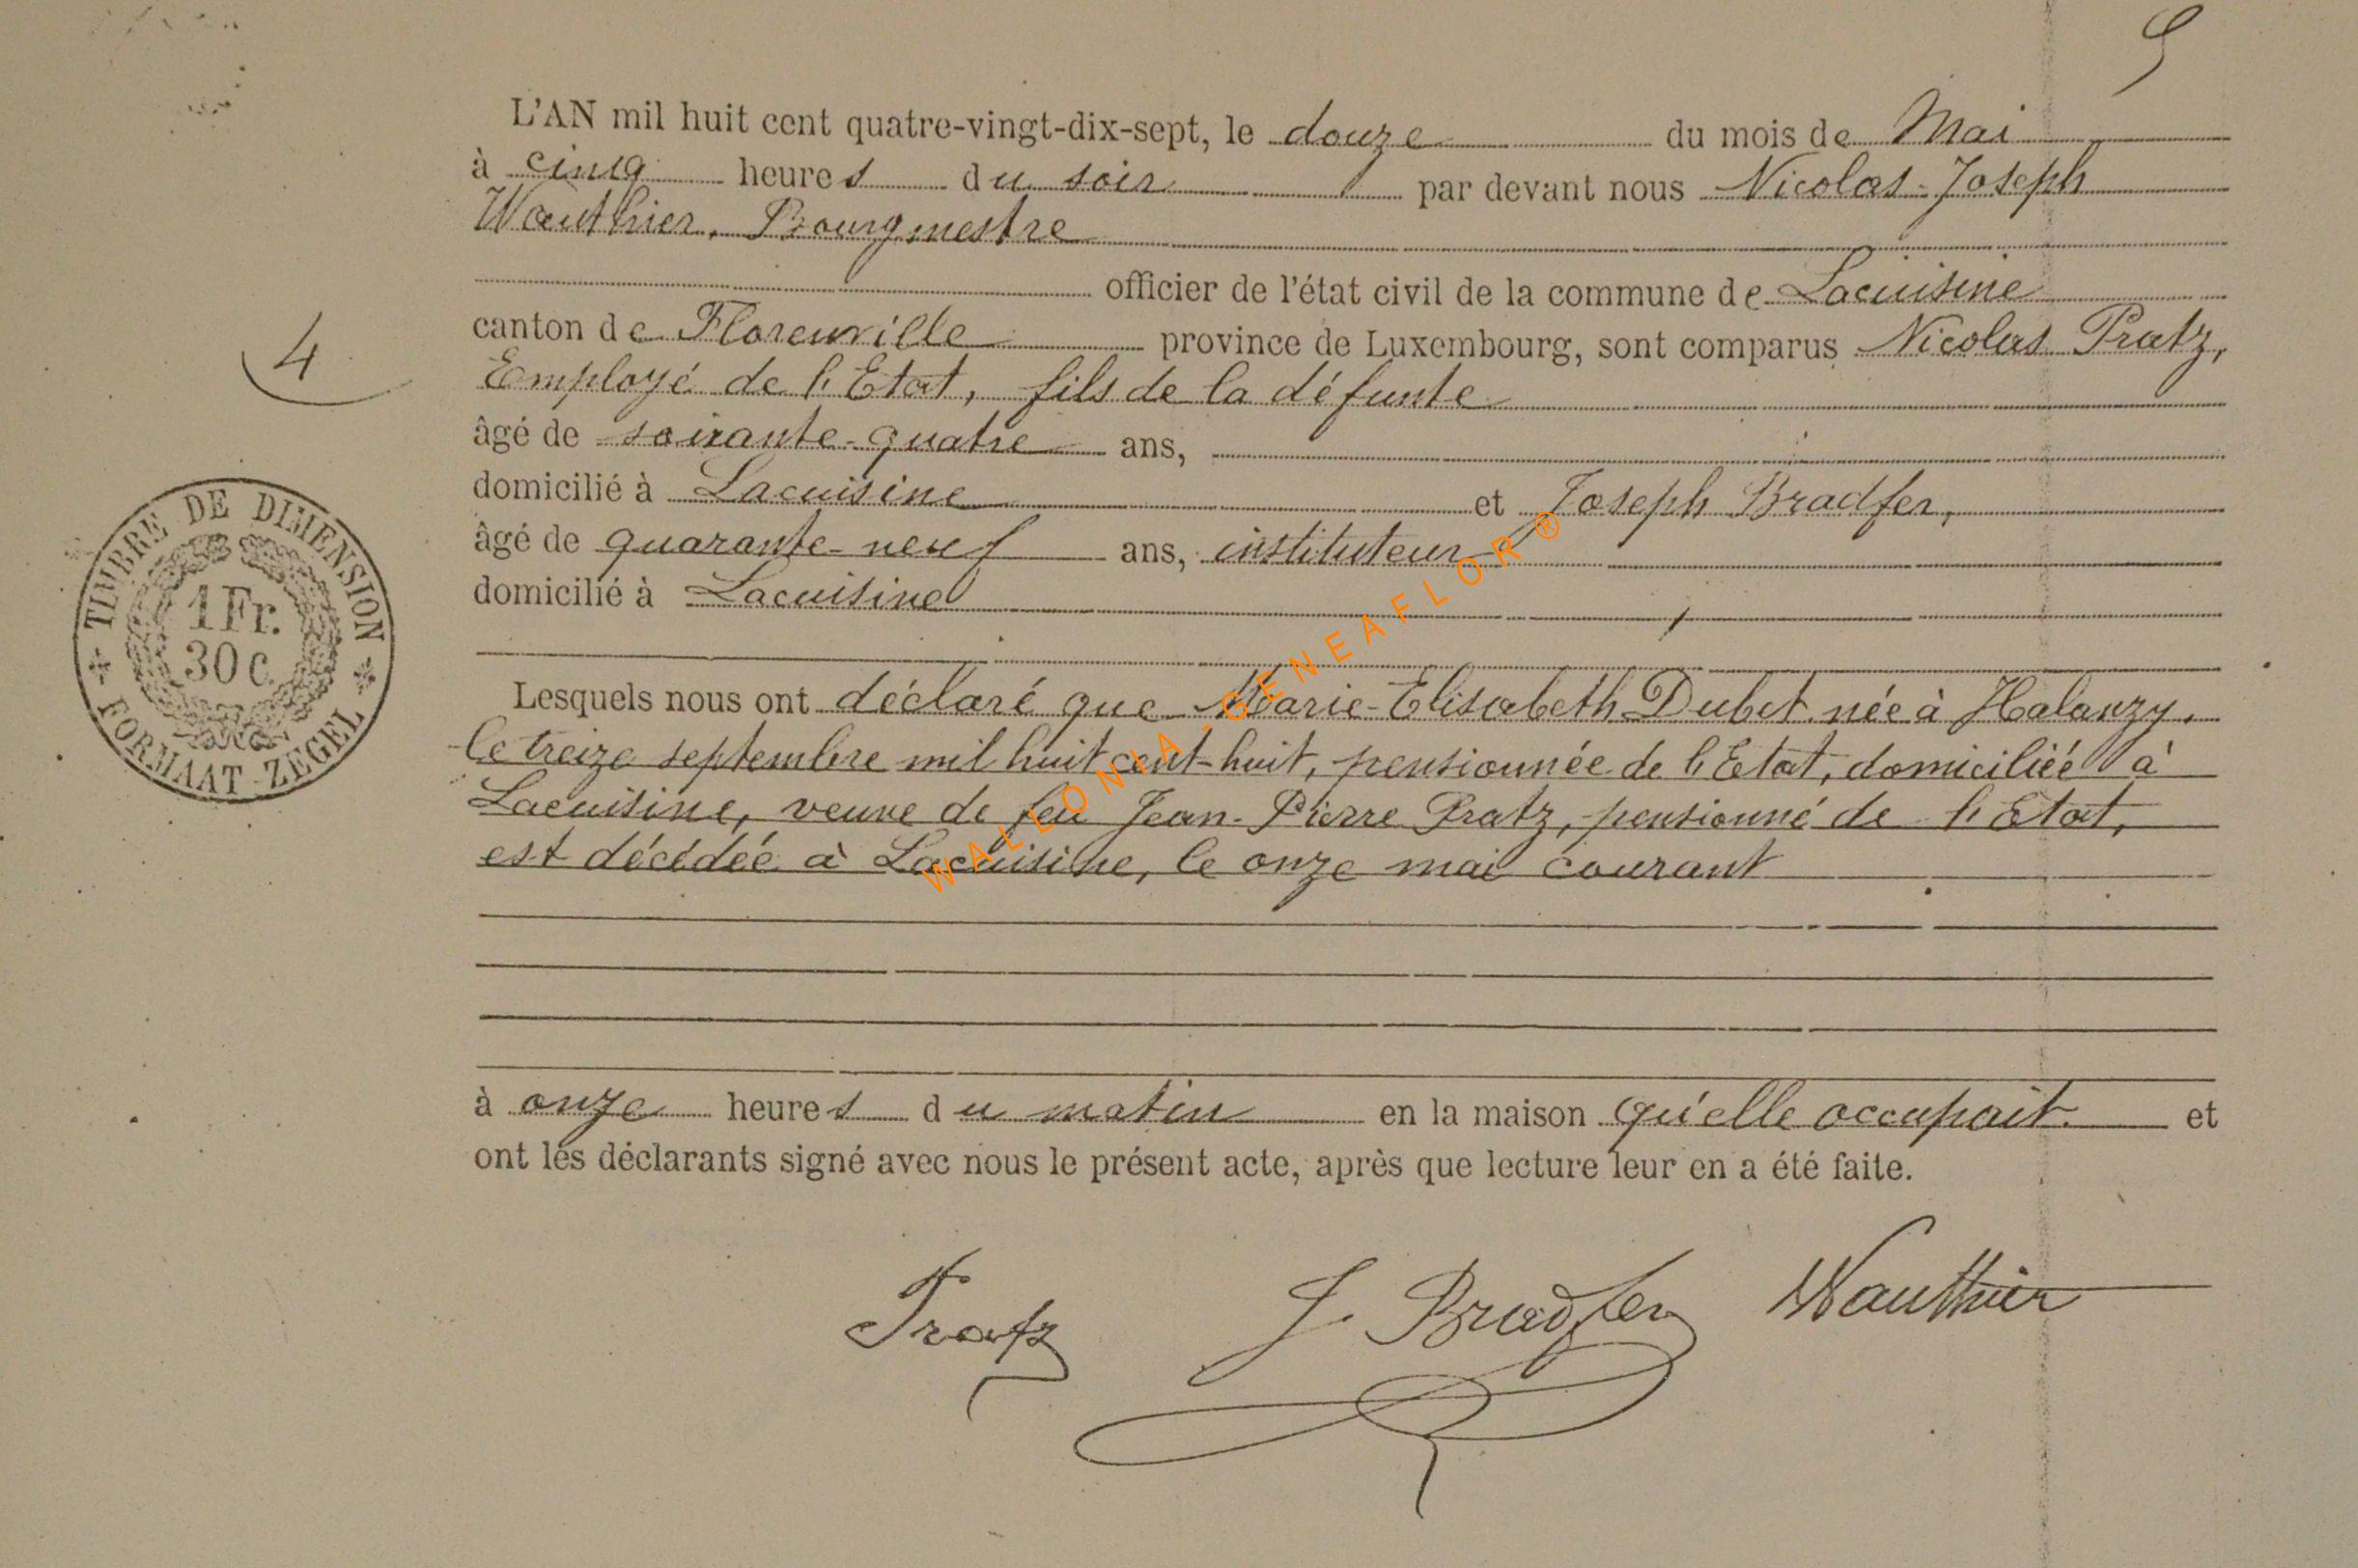 9
L'AN mil huit cent quatre-vingt-dix-sept, le douze du mois de Mai
à cinq heures du soir par devant nous Nicolas-Joseph
Wauthier, Bourgmestre
officier de l'état civil de la commune de Lacuisine
4
canton de Florenville province de Luxembourg, sont comparus Nicolas Pratz,
Employé de l'Etat, fils de la défunte
âgé de soixante-quatre ans,
domicilié à Lacuisine et Joseph Bradfer,
âgé de quarante-neuf ans, instituteur
domicilié à Lacuisine
TIMBRE DE DIMENSION
1 Fr.
30 c.
FORMAAT-ZEGEL
Lesquels nous ont déclaré que Marie-Elisabeth Dubet née à Halanzy,
le treize septembre mil huit cent-huit, pensionnée de l'Etat, domiciliée à
Lacuisine, veuve de feu Jean-Pierre Pratz, pensionné de l'Etat,
est décédée à Lacuisine, le onze mai courant
à onze heures du matin en la maison qu'elle occupait. et
ont les déclarants signé avec nous le présent acte, après que lecture leur en a été faite.
Pratz J. Bradfer Wauthier
WALLONIA-GENEAFLOR®